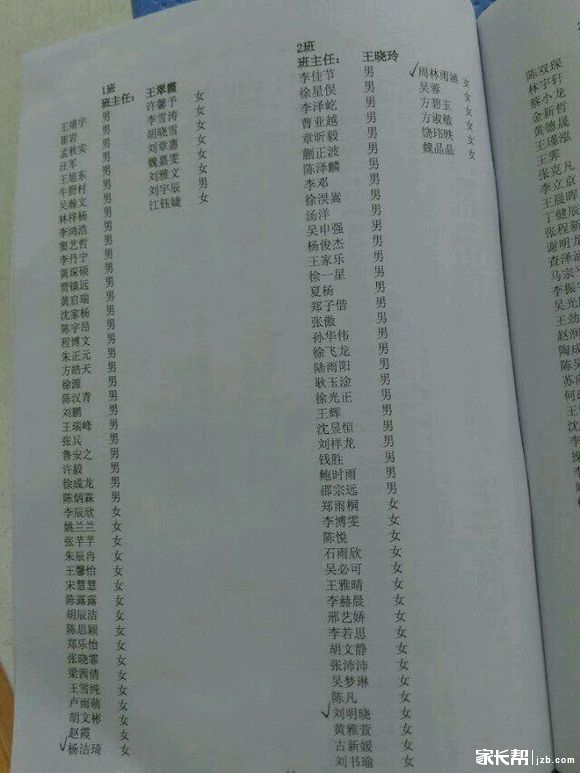 1班
班主任： 王翠霞
王靖宇 男
崔岩 男
孟秋实 男
汪军 男
王旭东 男
牛野村 男
吴瀚文 男
林梓杨 男
李鸿浩 男
窦艺哲 男
李丹宁 男
黄琛硕 男
贾镇远 男
黄启瑞 男
沈家杨 男
陈宇昂 男
程博文 男
朱正元 男
方皓天 男
徐源 男
陈汉青 男
刘鹏 男
王瑞峰 男
张兵 男
鲁安之 男
许毅 男
徐成龙 男
陈炳霖 男
李辰欣 女
姚兰兰 女
张芊芊 女
朱辰冉 女
王馨怡 女
宋慧慧 女
陈露露 女
胡辰洁 女
陈思颖 女
郑乐怡 女
张晓霏 女
梁茜倩 女
王雪纯 女
卢雨萌 女
胡文彬 女
赵霞 女
杨洁琦 女
许馨予 女
李雪涛 女
胡晓雪 女
刘章惠 女
魏嘉雯 女
刘雅文 女
刘宇辰 男
江钰婕 女
2班
班主任： 王晓玲
李佳节 男
徐星俣 男
李泽屹 男
曹亚越 男
章昕毅 男
蒯正波 男
陈泽麟 男
李邓 男
徐淏嵩 男
汤洋 男
吴申强 男
杨俊杰 男
王家乐 男
徐一星 男
夏杨 男
郑子偕 男
张傲 男
孙华伟 男
徐飞龙 男
陆雨阳 男
耿玉淦 男
徐光正 男
王辉 男
沈昱恒 男
刘祥龙 男
钱胜 男
鲍时雨 男
邵宗远 男
郑雨桐 女
李博雯 女
陈悦 女
石雨欣 女
吴必可 女
王雅晴 女
李赫晨 女
邢艺娇 女
李若思 女
胡文静 女
张沛沛 女
吴梦琳 女
陈凡 女
刘明晓 女
黄雅萱 女
古新媛 女
刘书瑜 女
周林雨涵 女
吴蓉 女
方碧玉 女
方淑敏 女
饶玮昳 女
魏晶晶 女
陈双琛
林宇轩
蔡小龙
金新哲
黄德晟
王瑾泓
王霁
张克凡
李立京
王晨晖
丁健辰
张程新
谢明
查泽
马宗
李振
吴光
王劲
赵
陶成
陈
苏
何
王
沈
李
家长帮 jzb.com